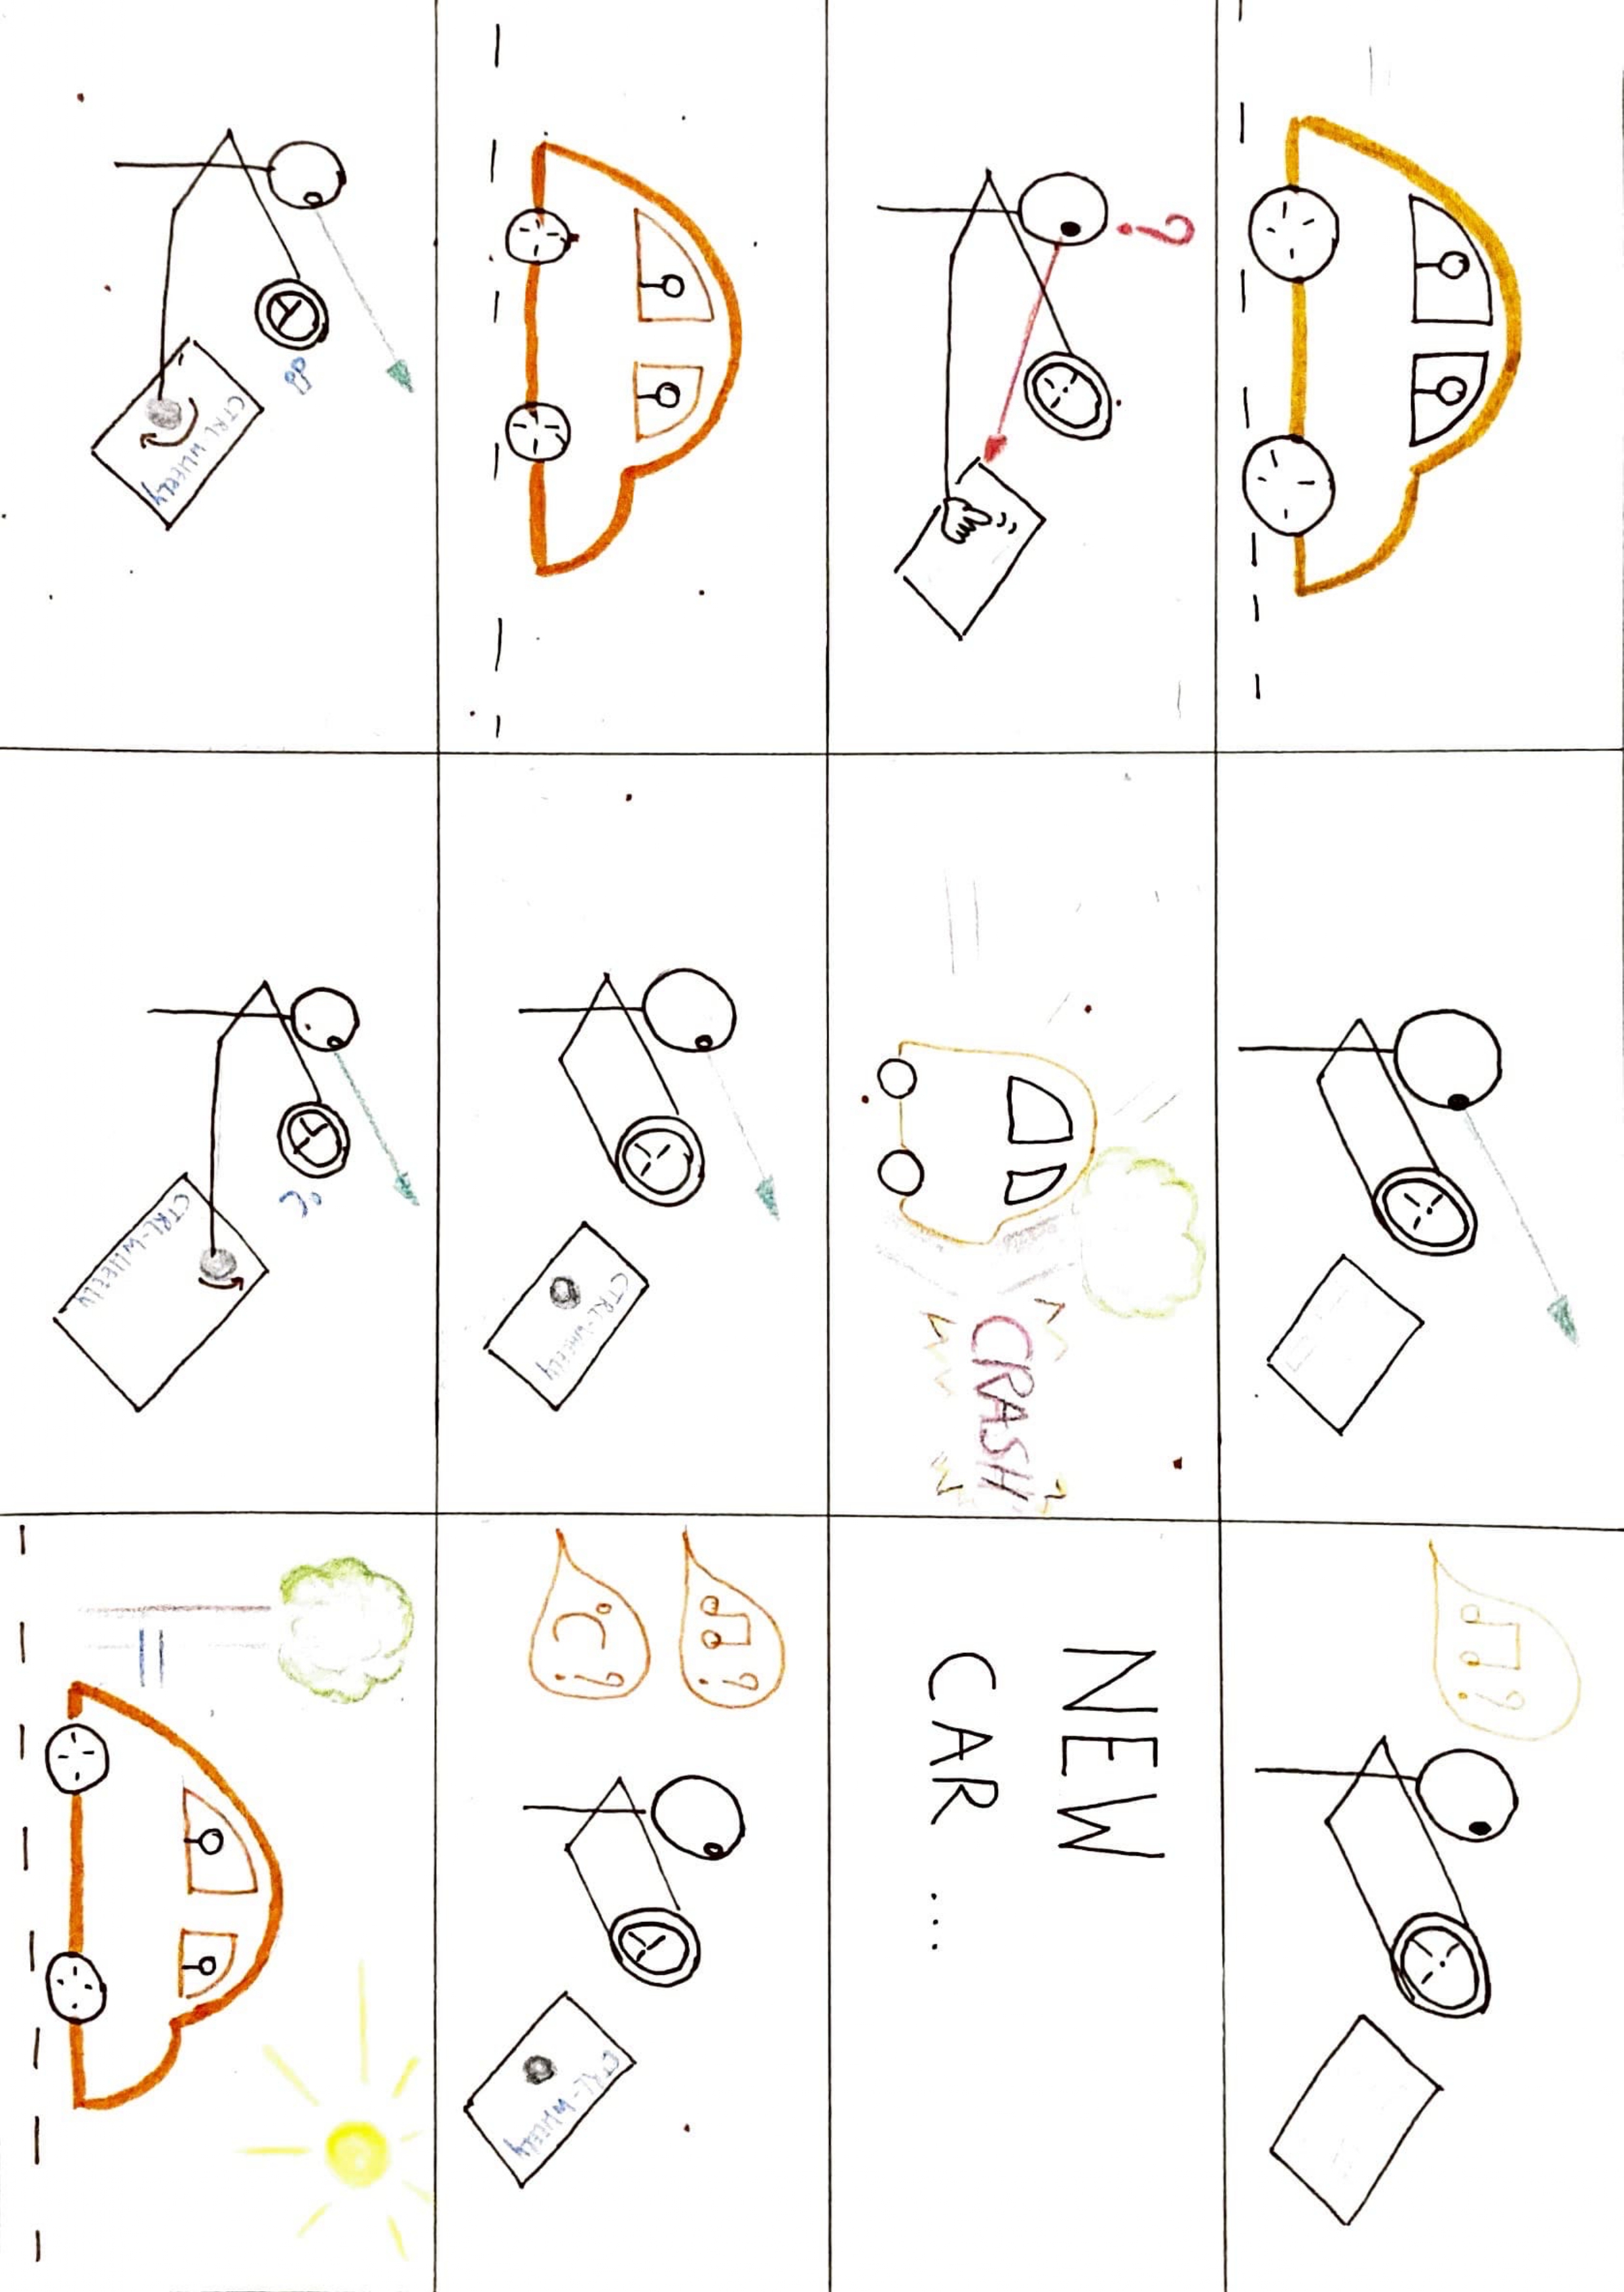 ?
?
CRASH
NEW
CAR ...
CTRL-WHEELY
?
°C ?
CTRL-WHEELY
CTRL-WHEELY
°C
CTRL-WHEELY